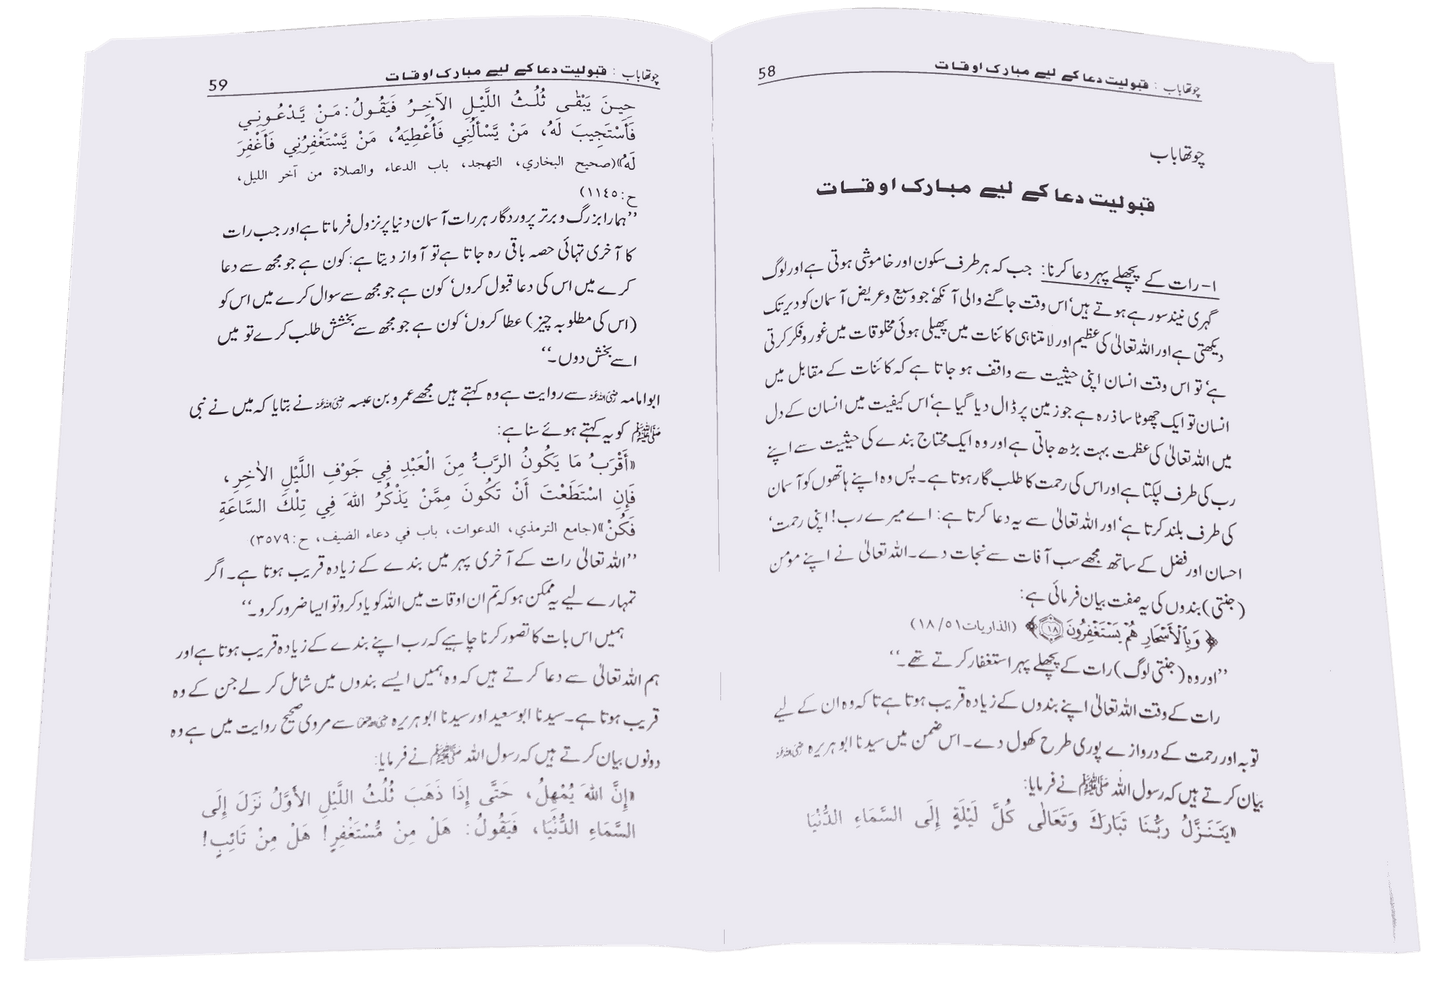 چوتھا باب : قبولیت دعا کے لیے مبارک اوقات
58
چوتھا باب
قبولیت دعا کے لیے مبارک اوقات
۱- رات کے پچھلے پہر دعا کرنا: جب کہ ہر طرف سکون اور خاموشی ہوتی ہے اور لوگ
گہری نیند سو رہے ہوتے ہیں‘ اس وقت جاگنے والی آنکھ‘ جو وسیع و عریض آسمان کو دیر تک
دیکھتی ہے اور اللہ تعالیٰ کی عظیم اور لامتناہی کائنات میں پھیلی ہوئی مخلوقات میں غور و فکر کرتی
ہے‘ تو اس وقت انسان اپنی حیثیت سے واقف ہو جاتا ہے کہ کائنات کے مقابل میں
انسان تو ایک چھوٹا سا ذرہ ہے جو زمین پر ڈال دیا گیا ہے‘ اس کیفیت میں انسان کے دل
میں اللہ تعالیٰ کی عظمت بہت بڑھ جاتی ہے اور وہ ایک محتاج بندے کی حیثیت سے اپنے
رب کی طرف لپکتا ہے اور اس کی رحمت کا طلب گار ہوتا ہے۔ پس وہ اپنے ہاتھوں کو آسمان
کی طرف بلند کرتا ہے‘ اور اللہ تعالیٰ سے یہ دعا کرتا ہے: اے میرے رب! اپنی رحمت‘
احسان اور فضل کے ساتھ مجھے سب آفات سے نجات دے۔ اللہ تعالیٰ نے اپنے مومن
(جنتی) بندوں کی یہ صفت بیان فرمائی ہے:
﴿ وَبِالْأَسْحَارِ هُمْ يَسْتَغْفِرُونَ ۝١٨ ﴾ (الذاریات ٥١/١٨)
’’اور وہ (جنتی لوگ) رات کے پچھلے پہر استغفار کرتے تھے۔‘‘
رات کے وقت اللہ تعالیٰ اپنے بندوں کے زیادہ قریب ہوتا ہے تا کہ وہ ان کے لیے
توبہ اور رحمت کے دروازے پوری طرح کھول دے۔ اس ضمن میں سیدنا ابو ہریرہ رضی اللہ عنہ
بیان کرتے ہیں کہ رسول اللہ ﷺ نے فرمایا:
«يَتَنَزَّلُ رَبُّنَا تَبَارَكَ وَتَعَالٰى كُلَّ لَيْلَةٍ إِلَى السَّمَاءِ الدُّنْيَا
چوتھا باب : قبولیت دعا کے لیے مبارک اوقات
59
حِينَ يَبْقٰى ثُلُثُ اللَّيْلِ الآخِرُ فَيَقُولُ: مَنْ يَّدْعُونِي
فَأَسْتَجِيبَ لَهُ، مَنْ يَّسْأَلُنِي فَأُعْطِيَهُ، مَنْ يَّسْتَغْفِرُنِي فَأَغْفِرَ
لَهُ»(صحيح البخاري، التهجد، باب الدعاء والصلاة من آخر الليل،
ح:١١٤٥)
’’ہمارا بزرگ و برتر پروردگار ہر رات آسمان دنیا پر نزول فرماتا ہے اور جب رات
کا آخری تہائی حصہ باقی رہ جاتا ہے تو آواز دیتا ہے: کون ہے جو مجھ سے دعا
کرے میں اس کی دعا قبول کروں‘ کون ہے جو مجھ سے سوال کرے میں اس کو
(اس کی مطلوبہ چیز) عطا کروں‘ کون ہے جو مجھ سے بخشش طلب کرے تو میں
اسے بخش دوں۔‘‘
ابو امامہ رضی اللہ عنہ سے روایت ہے وہ کہتے ہیں مجھے عمرو بن عبسہ رضی اللہ عنہ نے بتایا کہ میں نے نبی
ﷺ کو یہ کہتے ہوئے سنا ہے:
«أَقْرَبُ مَا يَكُونُ الرَّبُّ مِنَ الْعَبْدِ فِي جَوْفِ اللَّيْلِ الآخِرِ،
فَإِنِ اسْتَطَعْتَ أَنْ تَكُونَ مِمَّنْ يَذْكُرُ اللهَ فِي تِلْكَ السَّاعَةِ
فَكُنْ»(جامع الترمذي، الدعوات، باب في دعاء الضيف، ح:٣٥٧٩)
’’اللہ تعالیٰ رات کے آخری پہر میں بندے کے زیادہ قریب ہوتا ہے۔ اگر
تمہارے لیے یہ ممکن ہو کہ تم ان اوقات میں اللہ کو یاد کرو تو ایسا ضرور کرو۔‘‘
ہمیں اس بات کا تصور کرنا چاہیے کہ رب اپنے بندے کے زیادہ قریب ہوتا ہے اور
ہم اللہ تعالیٰ سے دعا کرتے ہیں کہ وہ ہمیں ایسے بندوں میں شامل کر لے جن کے وہ
قریب ہوتا ہے۔ سیدنا ابو سعید اور سیدنا ابو ہریرہ رضی اللہ عنہما سے مروی صحیح روایت میں ہے وہ
دونوں بیان کرتے ہیں کہ رسول اللہ ﷺ نے فرمایا:
«إِنَّ اللهَ يُمْهِلُ، حَتّٰى إِذَا ذَهَبَ ثُلُثُ اللَّيْلِ الأَوَّلُ نَزَلَ إِلَى
السَّمَاءِ الدُّنْيَا، فَيَقُولُ: هَلْ مِنْ مُّسْتَغْفِرٍ! هَلْ مِنْ تَائِبٍ!